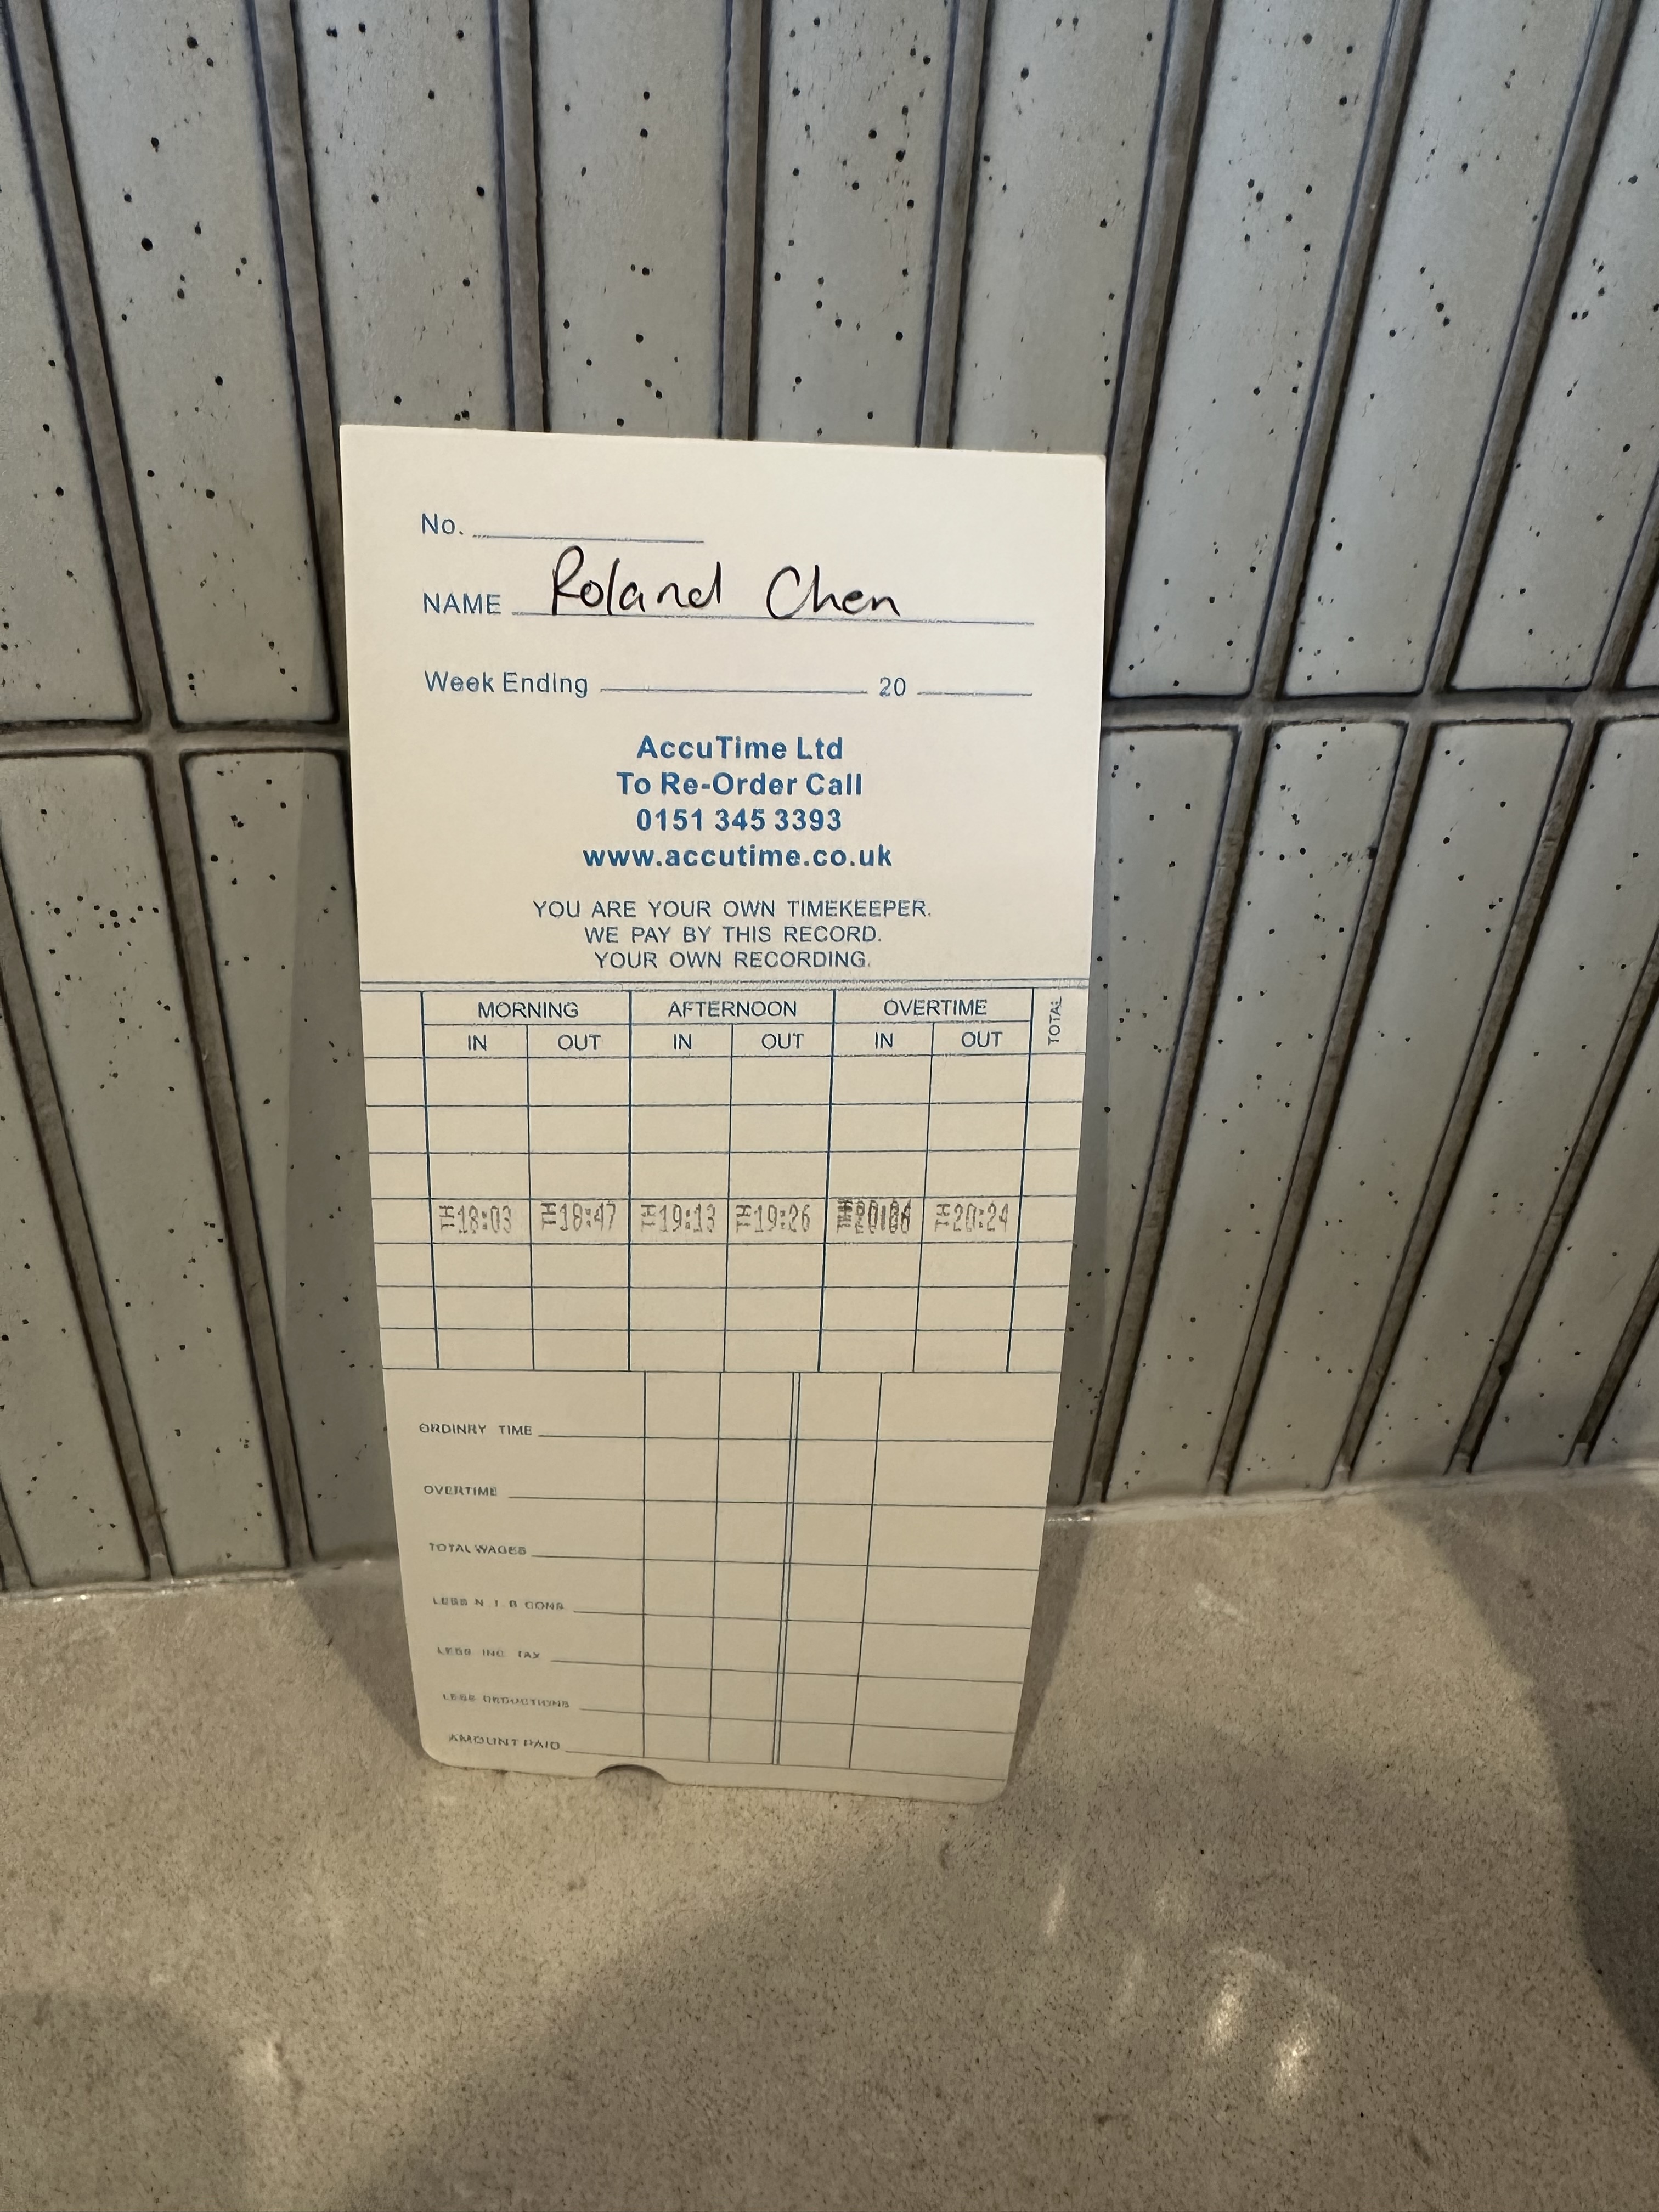 No.
NAME Roland Chen
Week Ending 20
AccuTime Ltd
To Re-Order Call
0151 345 3393
www.accutime.co.uk
YOU ARE YOUR OWN TIMEKEEPER.
WE PAY BY THIS RECORD.
YOUR OWN RECORDING.
MORNING AFTERNOON OVERTIME TOTAL
IN OUT IN OUT IN OUT
TH18:03 TH18:47 TH19:13 TH19:26 TH20:24
ORDINRY TIME
OVERTIME
TOTAL WAGES
LESS N I B CONS
LESS INC. TAX
LESS DEDUCTIONS
AMOUNT PAID